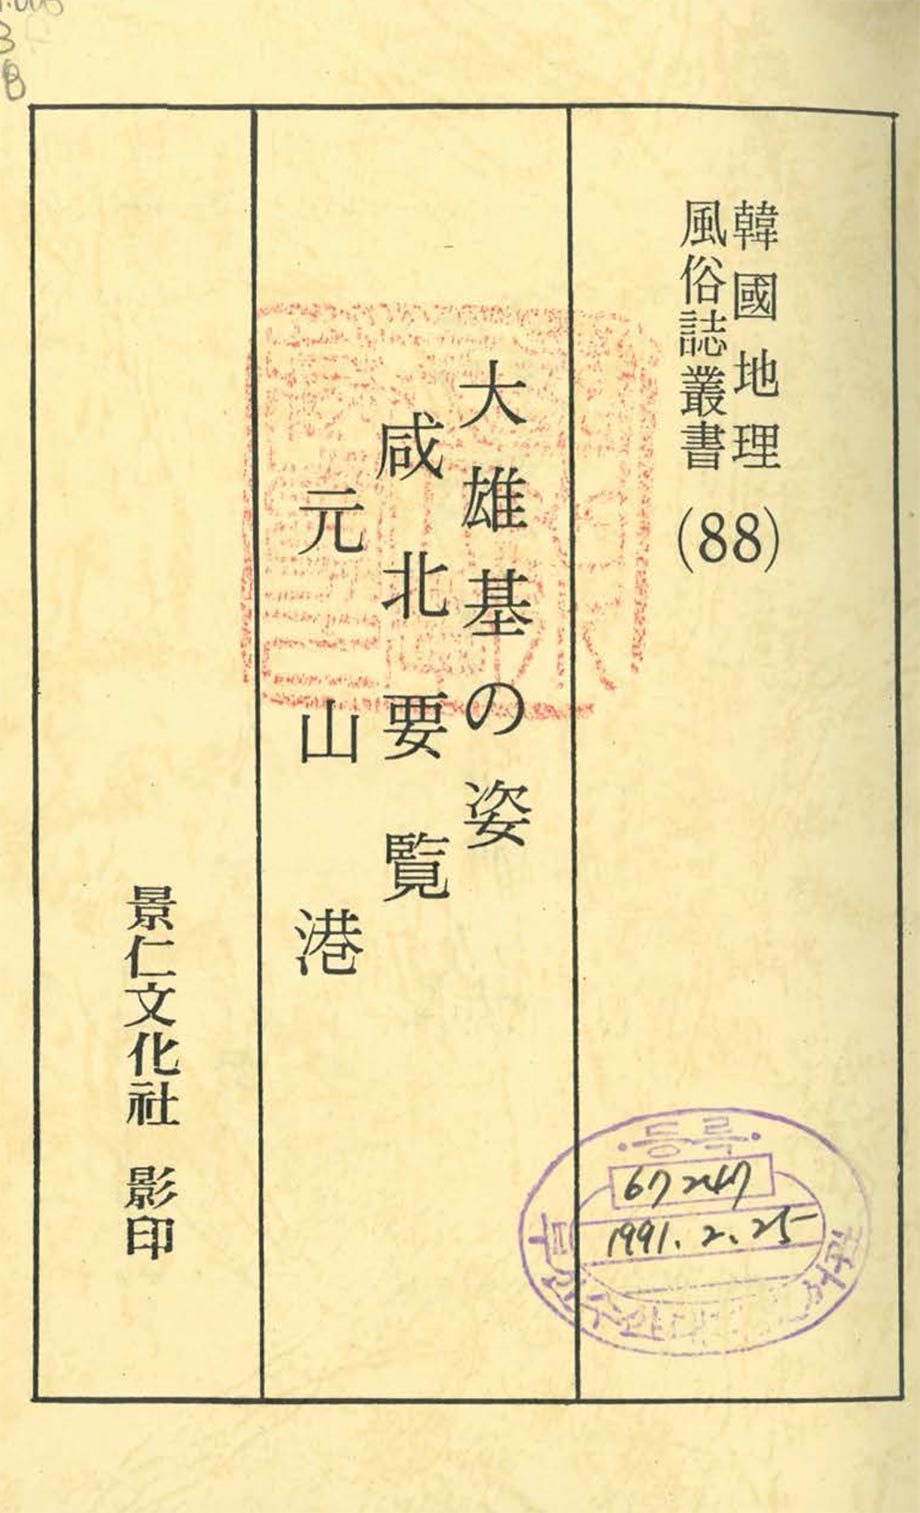 韓國地理
風俗誌叢書
(88)
大雄基の姿
咸北要覧
元山港
景仁文化社 影印
등록
67247
1991. 2. 25